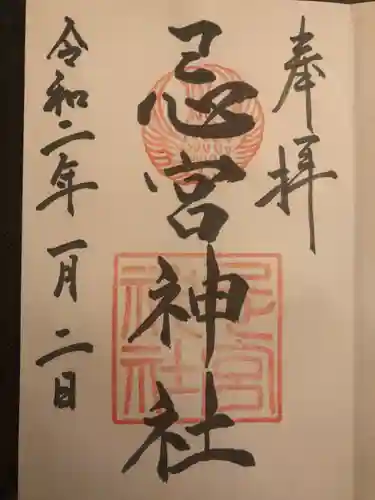 奉拝
忌宮神社
令和二年一月二日
忌宮神社